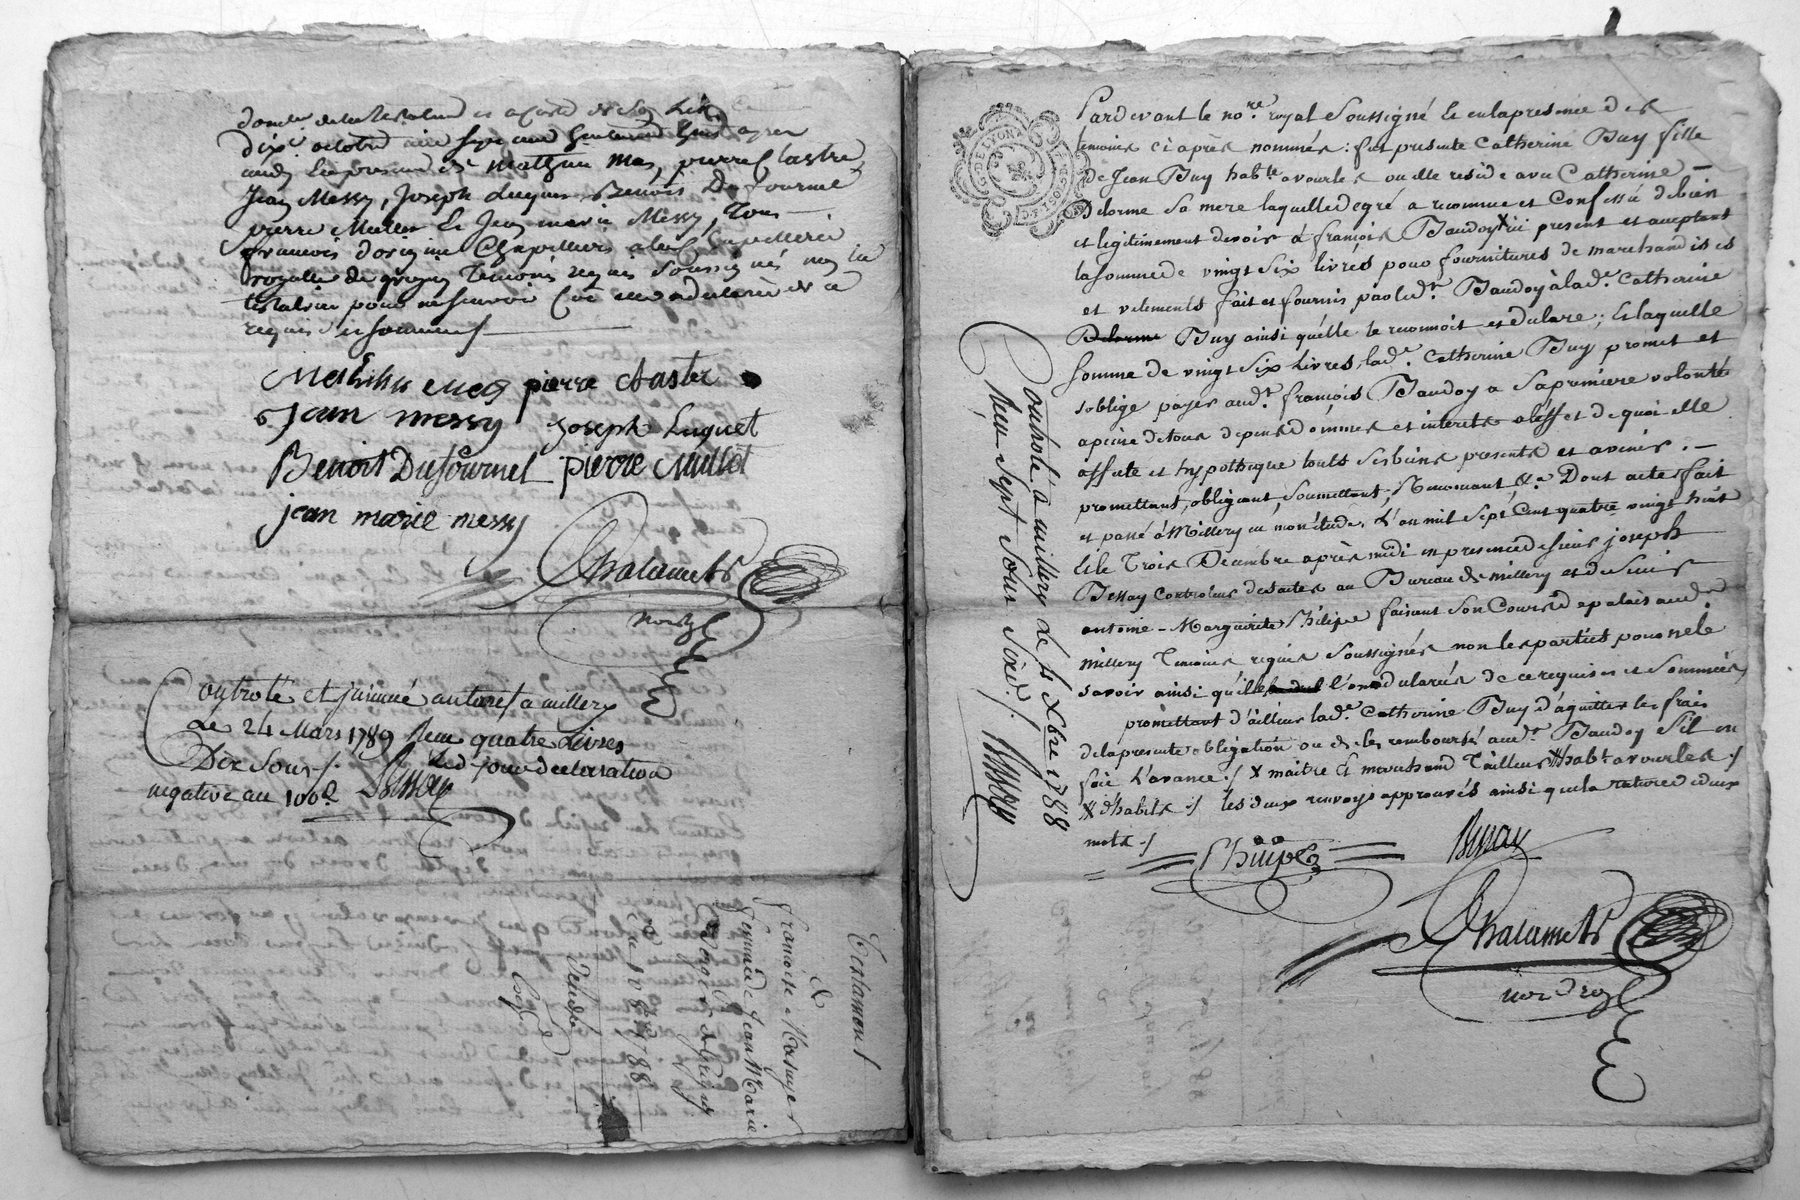 dixe octobre mil sept cent quatre vingt
Jean Messy, Joseph Luquet Benoit Dufournel
pierre Mullet Et Jean marie Messy, Tous
royalle de grigny Temoins requis Soussignés non la
testatrice pour ne scavoir
requise et sommée
pierre Chastre
Jean messy Joseph Luquet
Benoit Dufournel pierre Mullet
jean marie messy
Chalamet
nore
Controlé et insinué au tarif a millery
Le 24 Mars 1789 Reçu quatre Livres
Dix Sous ./.
negative au 100e Bessay
Testament
de
françoise
femme de Jean Marie
Vergier de Grigny
du 1788
Controlé à millery Le 4 Xbre 1788
Reçu Sept Sous Six d. /. Bessay
GEN. DE LYON
Pardevant le nore. royal Soussigné Et en la presence des
temoins ci après nommés : fut presente Catherine Buy fille
de Jean Buy habte. a vourles ou elle reside avec Catherine
Delorme Sa mere laquelle de gré a reconnu et Confessé debien
et legitimement devoir à françois Baudoy X ici present et acceptant
la Somme de vingt Six livres pour fournitures de marchandises
et vetements fait et fournis par led. Baudoy à lad. Catherine
Delorme Buy ainsi quelle le reconnoit et declare ; Et laquelle
Somme de vingt Six livres, lad. Catherine Buy promet et
s'oblige payer aud. françois Baudoy a Sa premiere volonté
a peine de tous depens dommes et interets a leffet de quoi elle
affecte et hypotheque touts Ses biens presents et avenir. —
promettant, obligeant, Soumettant, Renonçant, &a. Dont acte fait
et passé à Millery en mon étude, L'an mil Sept Cent quatre vingt huit
Et le Trois Decembre après midi en presence de Sieur joseph
Bessay Controleur des actes au Bureau de millery et de Sieur
antoine - Marguerite Philipe faisant Son Cours de palais aud.
Millery Temoins requis Soussignés non les parties pour ne le
savoir ainsi qu'ils l'ont declarés de ce requises et Sommées,
promettant d'ailleurs lad. Catherine Buy d'aquitter les frais
de la presente obligation ou de les rembourser aud. Baudoy S'il en
fait L'avance ./. X maitre Et marchand Tailleur # habt. a vourles ./.
# d'habits ./. les deux renvoys approuvés ainsi que la rature de deux
mots ./.
Philipe Bessay
Chalamet
nore royal